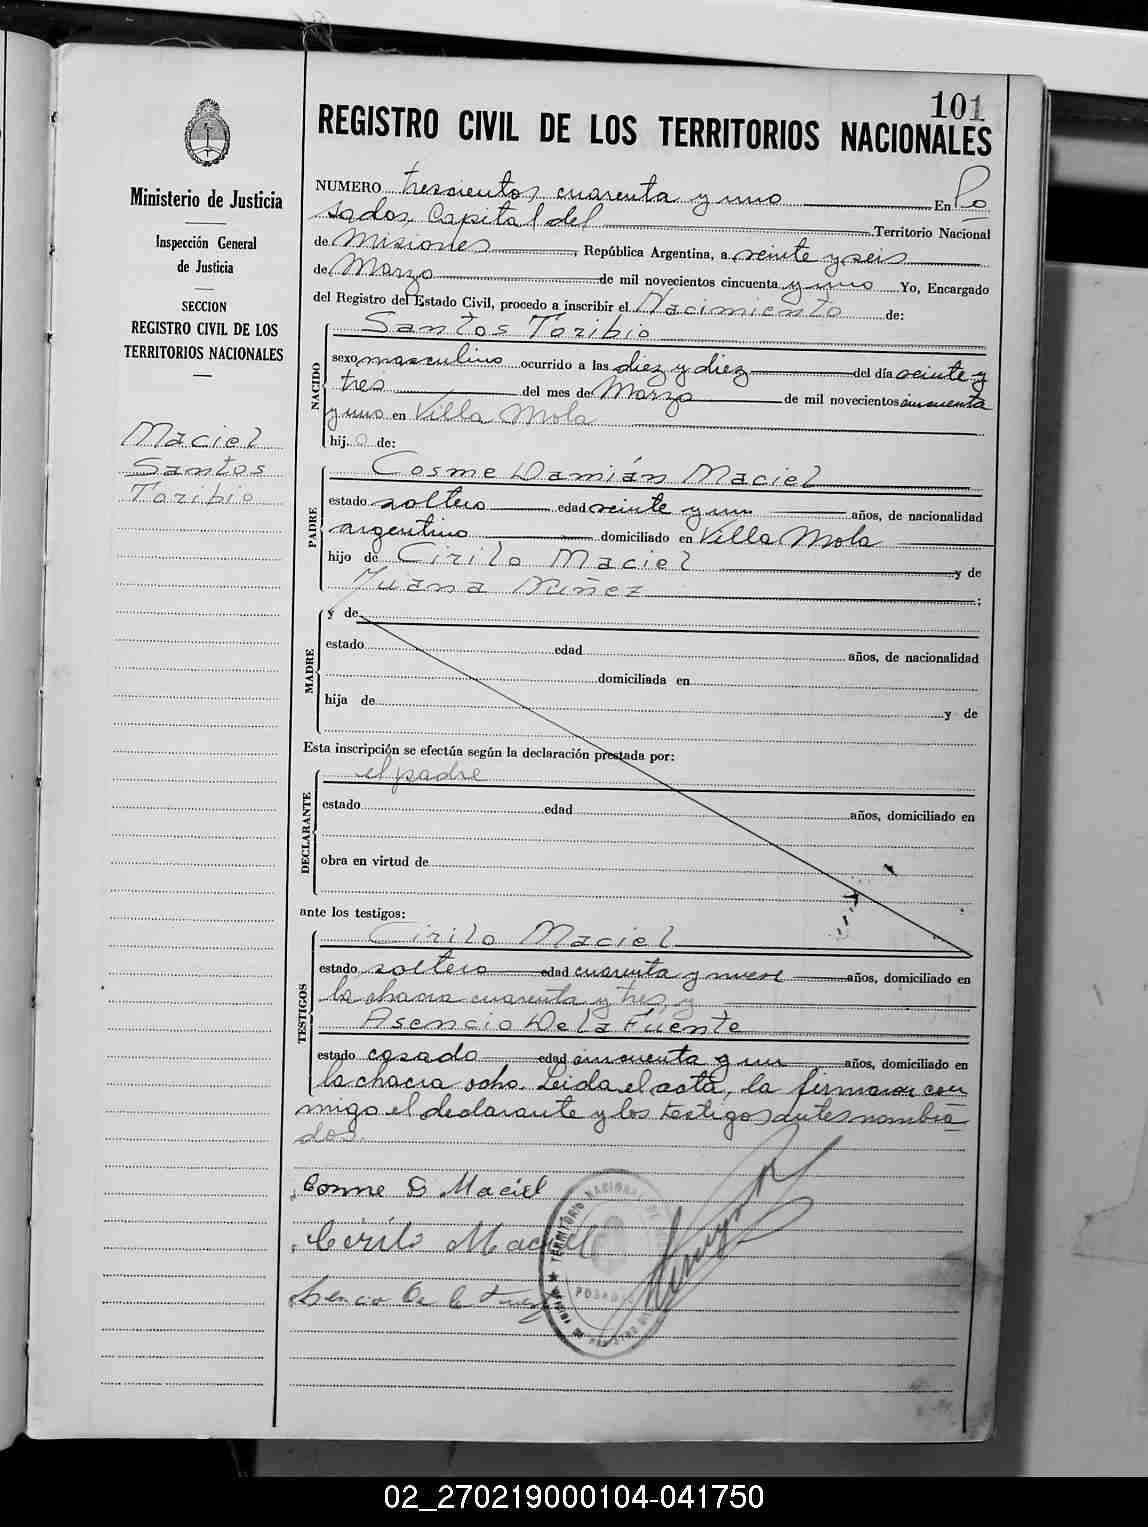 101
REGISTRO CIVIL DE LOS TERRITORIOS NACIONALES
Ministerio de Justicia
Inspección General
de Justicia
SECCION
REGISTRO CIVIL DE LOS
TERRITORIOS NACIONALES
Maciel
Santos
Toribio
NUMERO trescientos cuarenta y uno En Po
sadas, Capital del Territorio Nacional
de Misiones, República Argentina, a veinte y seis
de Marzo de mil novecientos cincuenta y uno Yo, Encargado
del Registro del Estado Civil, procedo a inscribir el Nacimiento de:
NACIDO
Santos Toribio
sexo masculino ocurrido a las diez y diez del día veinte y
tres del mes de Marzo de mil novecientos cincuenta
y uno en Villa Mola
hij o de:
PADRE
Cosme Damián Maciel
estado soltero edad veinte y un años, de nacionalidad
argentino domiciliado en Villa Mola
hijo de Cirilo Maciel y de
Juana Núñez ;
MADRE
y de
estado edad años, de nacionalidad
domiciliada en
hija de y de
Esta inscripción se efectúa según la declaración prestada por:
DECLARANTE
el padre
estado edad años, domiciliado en
obra en virtud de
ante los testigos:
TESTIGOS
Cirilo Maciel
estado soltero edad cuarenta y nueve años, domiciliado en
la chacra cuarenta y tres, y
Asencio De la Fuente
estado casado edad cincuenta y un años, domiciliado en
la chacra ocho. Leida el acta, la firmaron con
migo el declarante y los testigos antes nombra
dos.
Cosme D Maciel
Cirilo Maciel
Asencio De la Fuente
TERRITORIO NACIONAL DE
POSADAS
02_270219000104-041750